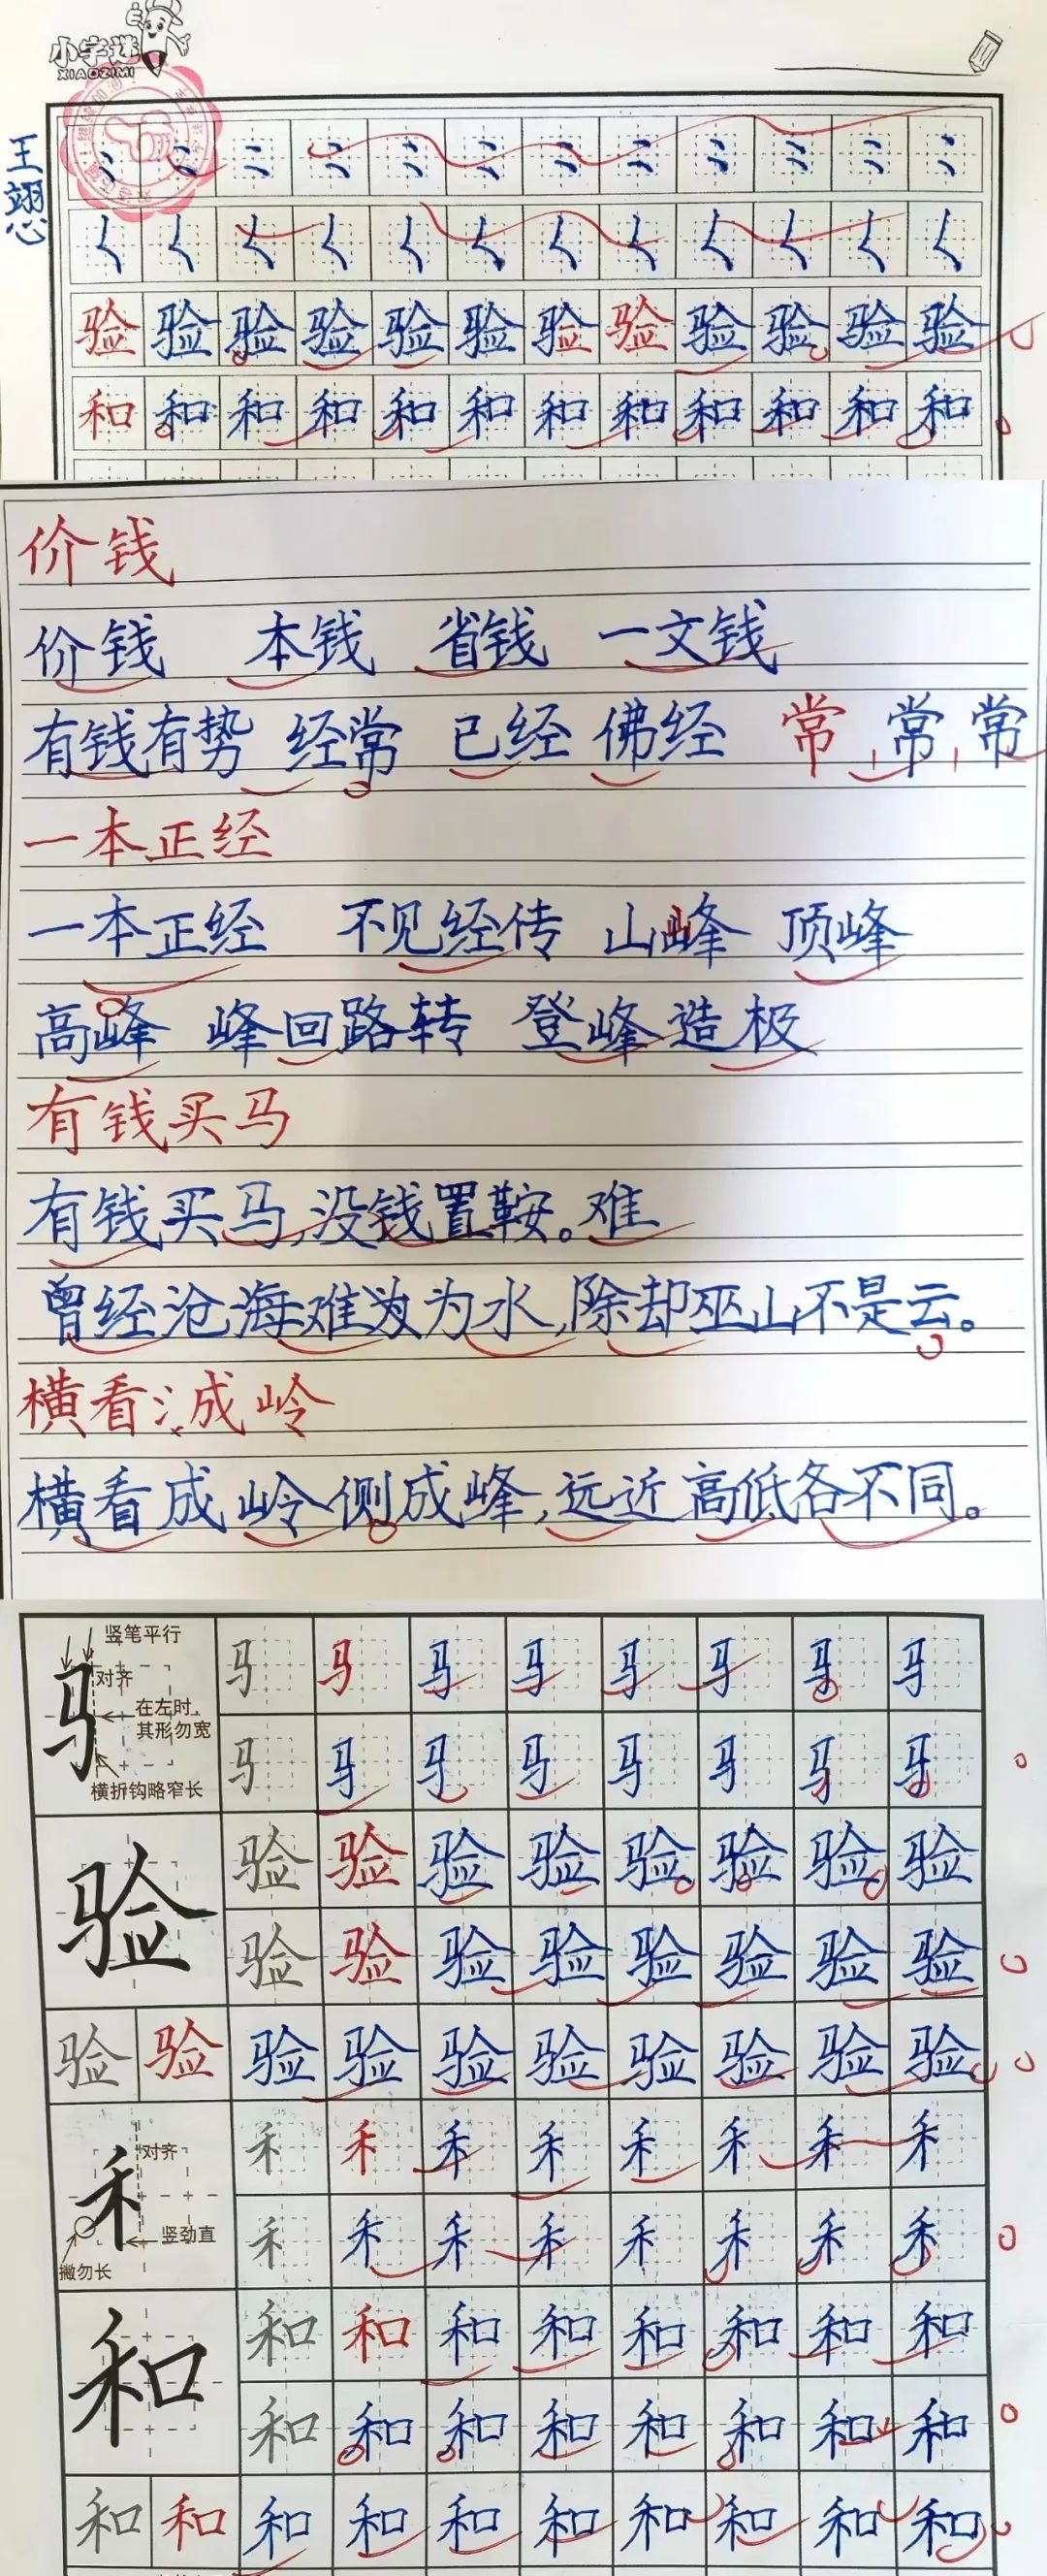 小字迷
XIAOZIMI
王翊心
验验验验验验验验验验验验
和和和和和和和和和和和和
价钱
价钱 本钱 省钱 一文钱
有钱有势 经常 已经 佛经 常,常,常
一本正经
一本正经 不见经传 山峰 顶峰
高峰 峰回路转 登峰造极
有钱买马
有钱买马,没钱置鞍。难
曾经沧海难为为水,除却巫山不是云。
横看成岭
横看成岭侧成峰,远近高低各不同。
竖笔平行
对齐
在左时,
其形勿宽
横折钩略窄长
马马马马马马马马
马马马马马马马马
验
验验验验验验验验
验验验验验验验验
验验验验验验验验验验
对齐
竖劲直
撇勿长
禾禾禾禾禾禾禾禾
禾禾禾禾禾禾禾禾
和
和和和和和和和和
和和和和和和和和
和和和和和和和和和和